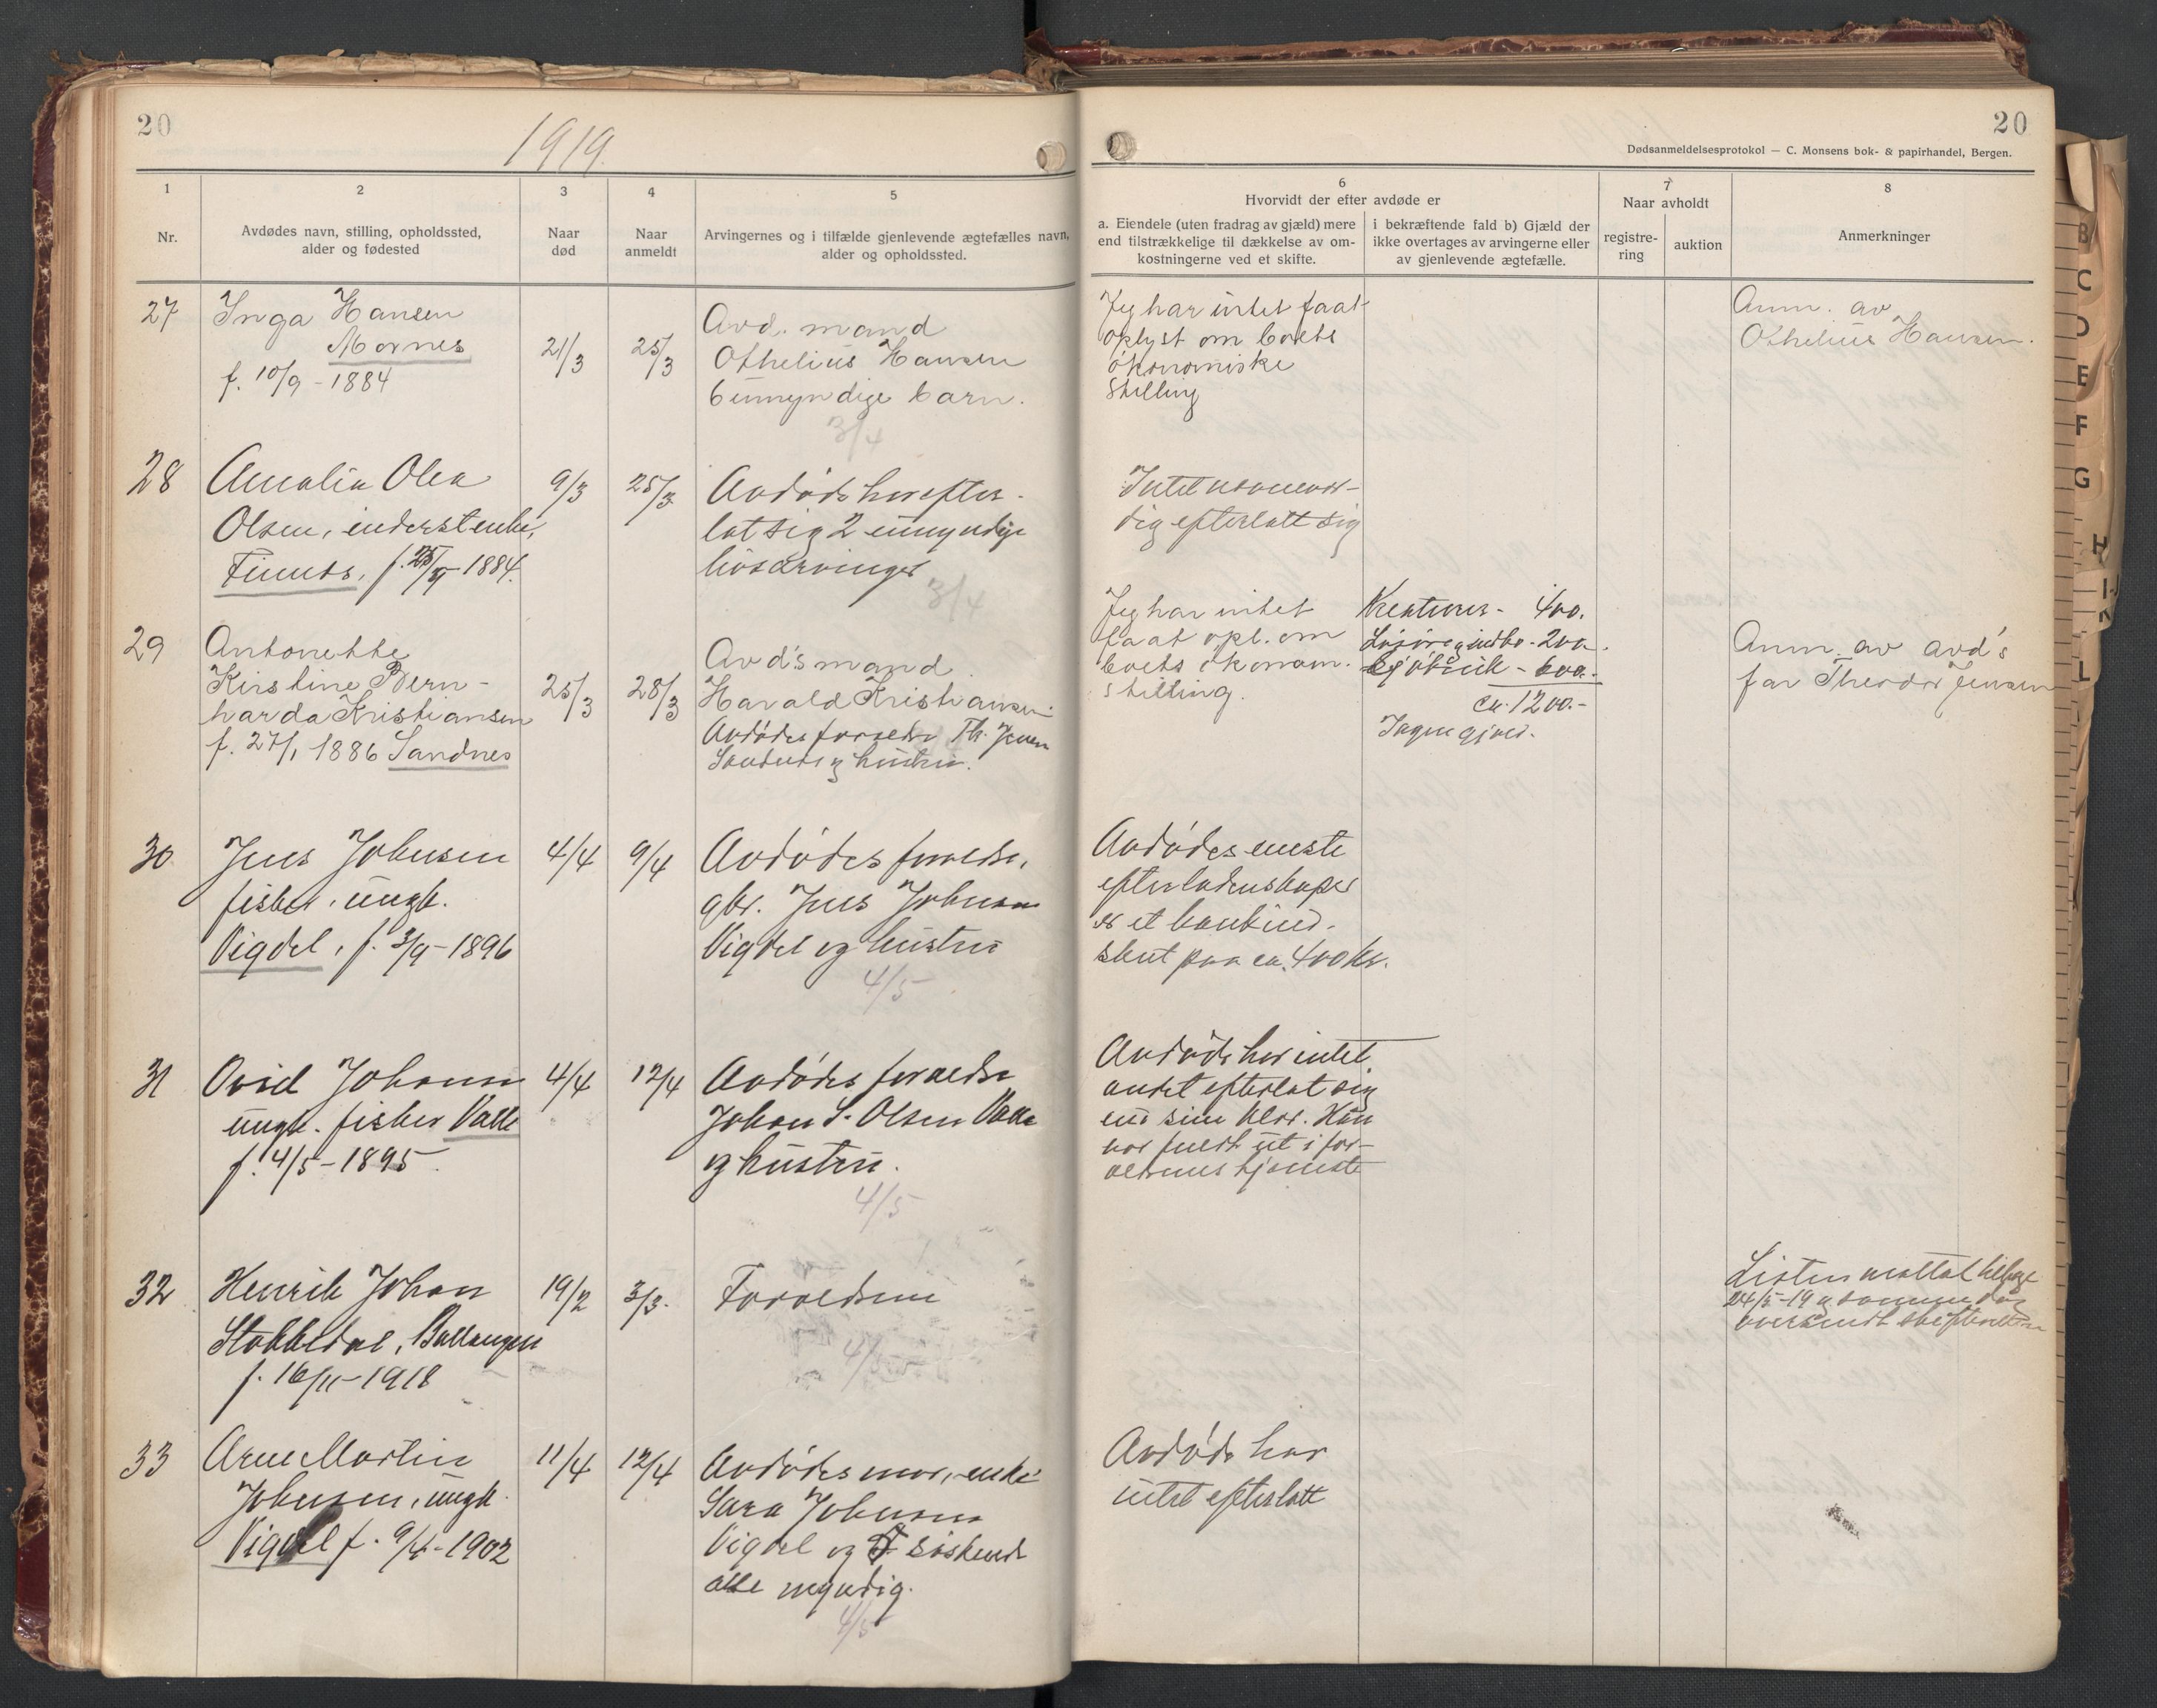 20
1919.
20
Dødsanmeldelsesprotokol — C. Monsens bok- & papirhandel, Bergen.
1
Nr.
2
Avdødes navn, stilling, opholdssted,
alder og fødested
3
Naar
død
4
Naar
anmeldt
5
Arvingernes og i tilfælde gjenlevende ægtefælles navn,
alder og opholdssted.
6
Hvorvidt der efter avdøde er
a. Eiendele (uten fradrag av gjæld) mere
end tilstrækkelige til dækkelse av om-
kostningerne ved et skifte.
i bekræftende fald b) Gjæld der
ikke overtages av arvingerne eller
av gjenlevende ægtefælle.
7
Naar avholdt
registre-
ring
auktion
8
Anmerkninger
27
Inga Hansen
Mornes
f. 10/9 - 1884
21/3
25/3
Avd. mand
Othelius Hansen
6 umyndige barn.
3/4
Jeg har intet faat
oplyst om boets
økonomiske
Stilling
Anm. av
Othelius Hansen.
28
Amalia Olea
Olsen, inderstenke,
f. 1884.
9/3
25/3
Avdøde har efter-
latt sig 2 umyndige
livsarvinger
3/4
Intet nævnevær-
dig efterlatt sig
29
Antonette
Kirstine Bern-
harda Kristiansen
f. 27/1 1886 Sandnes
25/3
28/3
Avd's mand
Harald Kristiansen
Avdødes forældre Th. Jensen
Sandnes og hustru.
Jeg har intet
faat opl. om
boets økonom.
stilling.
Kreaturer - 400.
Løsøre og indbo - 200.
Sjøbruk - 600.-
ca. 1200.-
Ingen gjæld.
Anm. av avd's
far Theodor Jensen
30
Jens Johnsen
fisker, ungk.
Vigdel, f. 3/9 - 1896
4/4
9/4
Avdødes forældre,
gbr. Jens Johnsen
Vigdel og hustru
4/5
Avdødes eneste
efterladenskaper
er et bankind-
skut paa ca. 400 kr.
31
Johansen
ungk. fisker Valle
f. 4/5 - 1895
4/4
12/4
Avdødes forældre
Johan S. Olsen Valle
og hustru.
4/5
Avdøde har intet
andet efterlat sig
end sine klær. Han
var fuldt ut i for-
ældrenes tjeneste
32
Henrik Johan
Stobbedal, Ballangen
f. 16/11 - 1918
19/2
3/3.
Forældrene
4/5
Listen mottat tilbake
24/5-19 og samme dag
oversendt skifteretten
33
Arne Martin
Johnsen, ungk.
Vigdel f. 9/4 - 1902
11/4
12/4
Avdødes mor, enke
Sara Johnsen
Vigdel og søskende
alle myndig.
4/5
Avdøde har
intet efterlatt
B
C
D
E
F
G
H
L